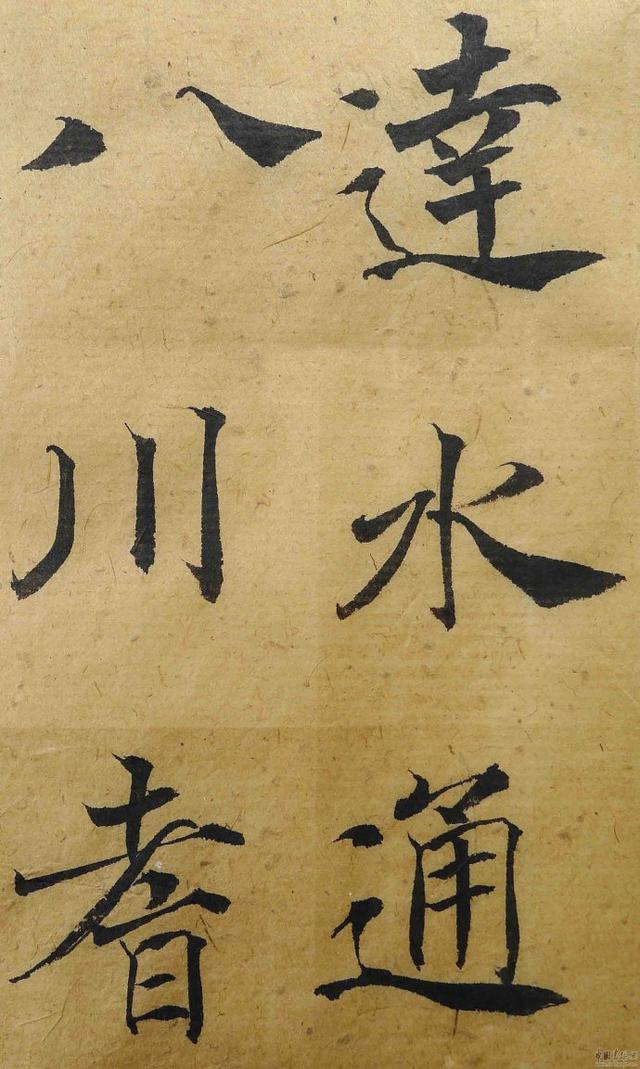 達水通
八川耆